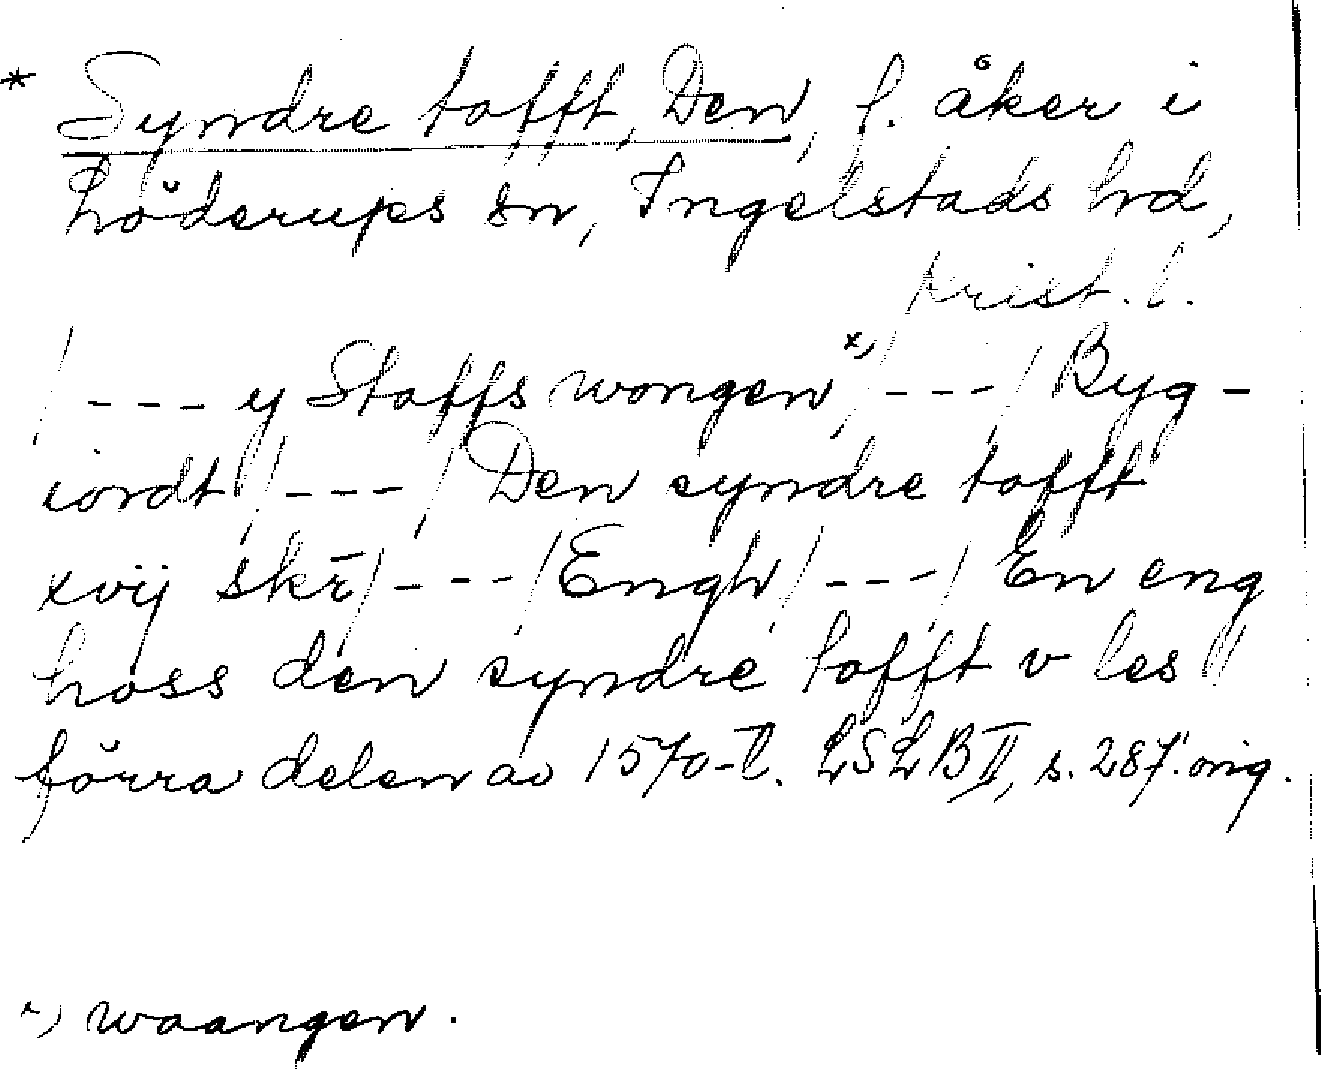 * Syndre tofft, Den, f. åker i
Löderups sn, Ingelstads hd,
Krist. l.
/--- y Stoffs wongen x) /---/ Byg-
iordt /---/ Den syndre tofft
xvij skr̄ /---/ Engh /---/ En eng
hoss den syndre tofft v les"
förra delen av 1570-t. LSLB II, s. 287. orig.
x) waangen.